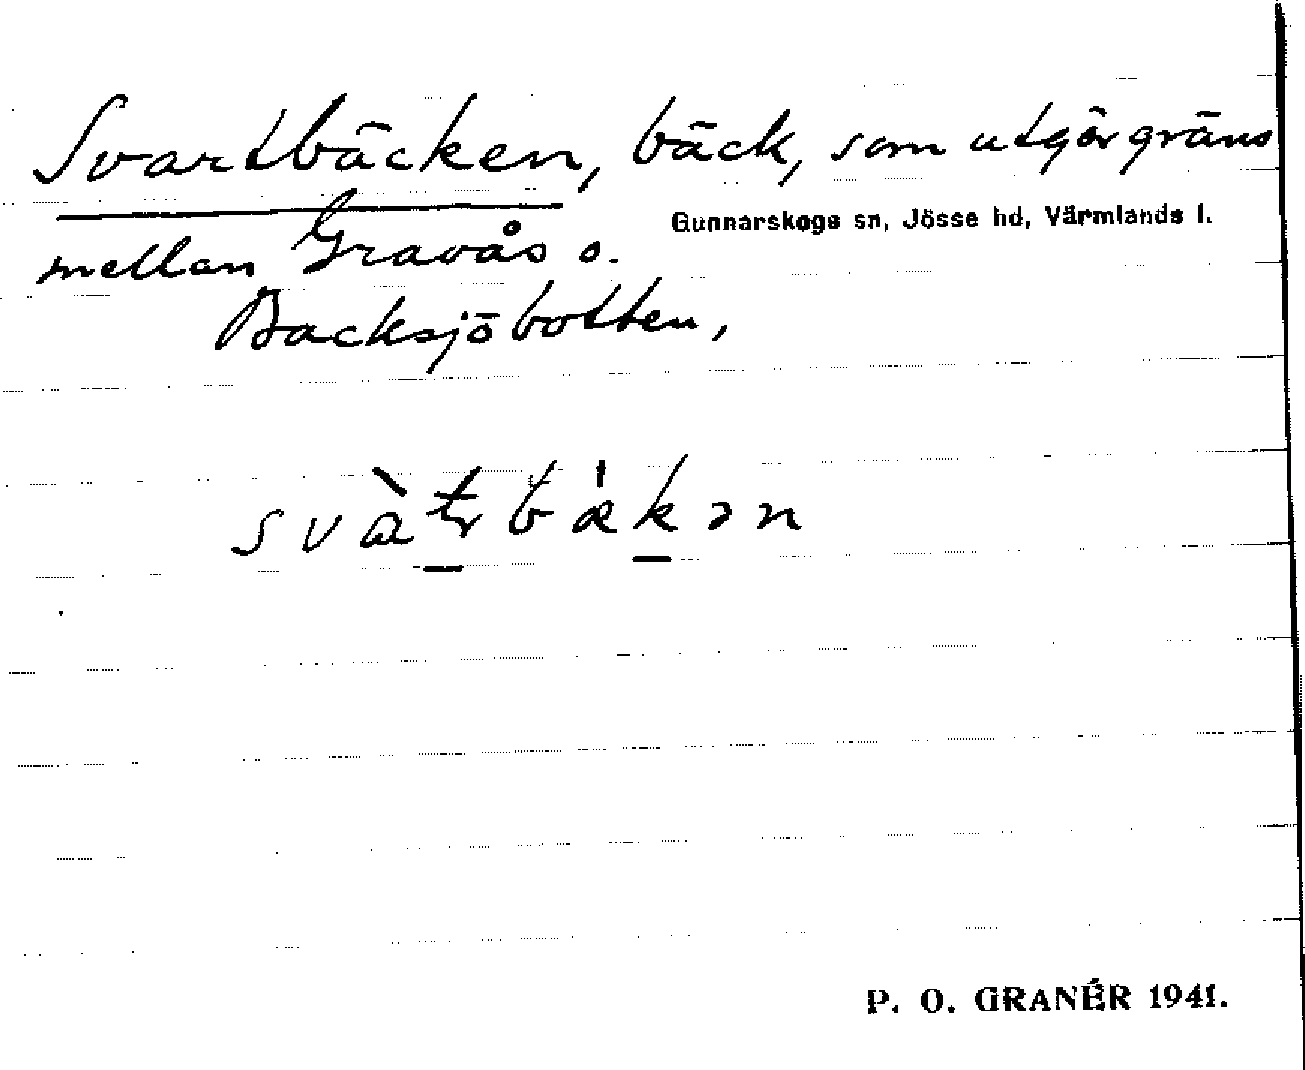 Svartbäcken, bäck, som utgör gräns
Gunnarskogs sn, Jösse hd, Värmlands l.
mellan Gravås o.
Backsjöbotten,
P. O. GRANÉR 1941.